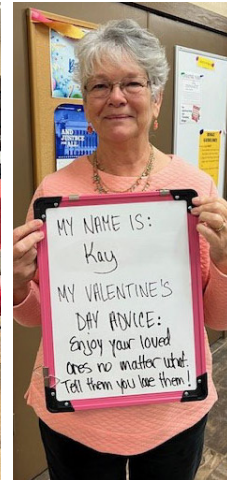 AND
JUSTICE
for ALL
MY NAME IS:
Kay
MY VALENTINE'S
DAY ADVICE:
Enjoy your loved
ones no matter what.
Tell them you love them!